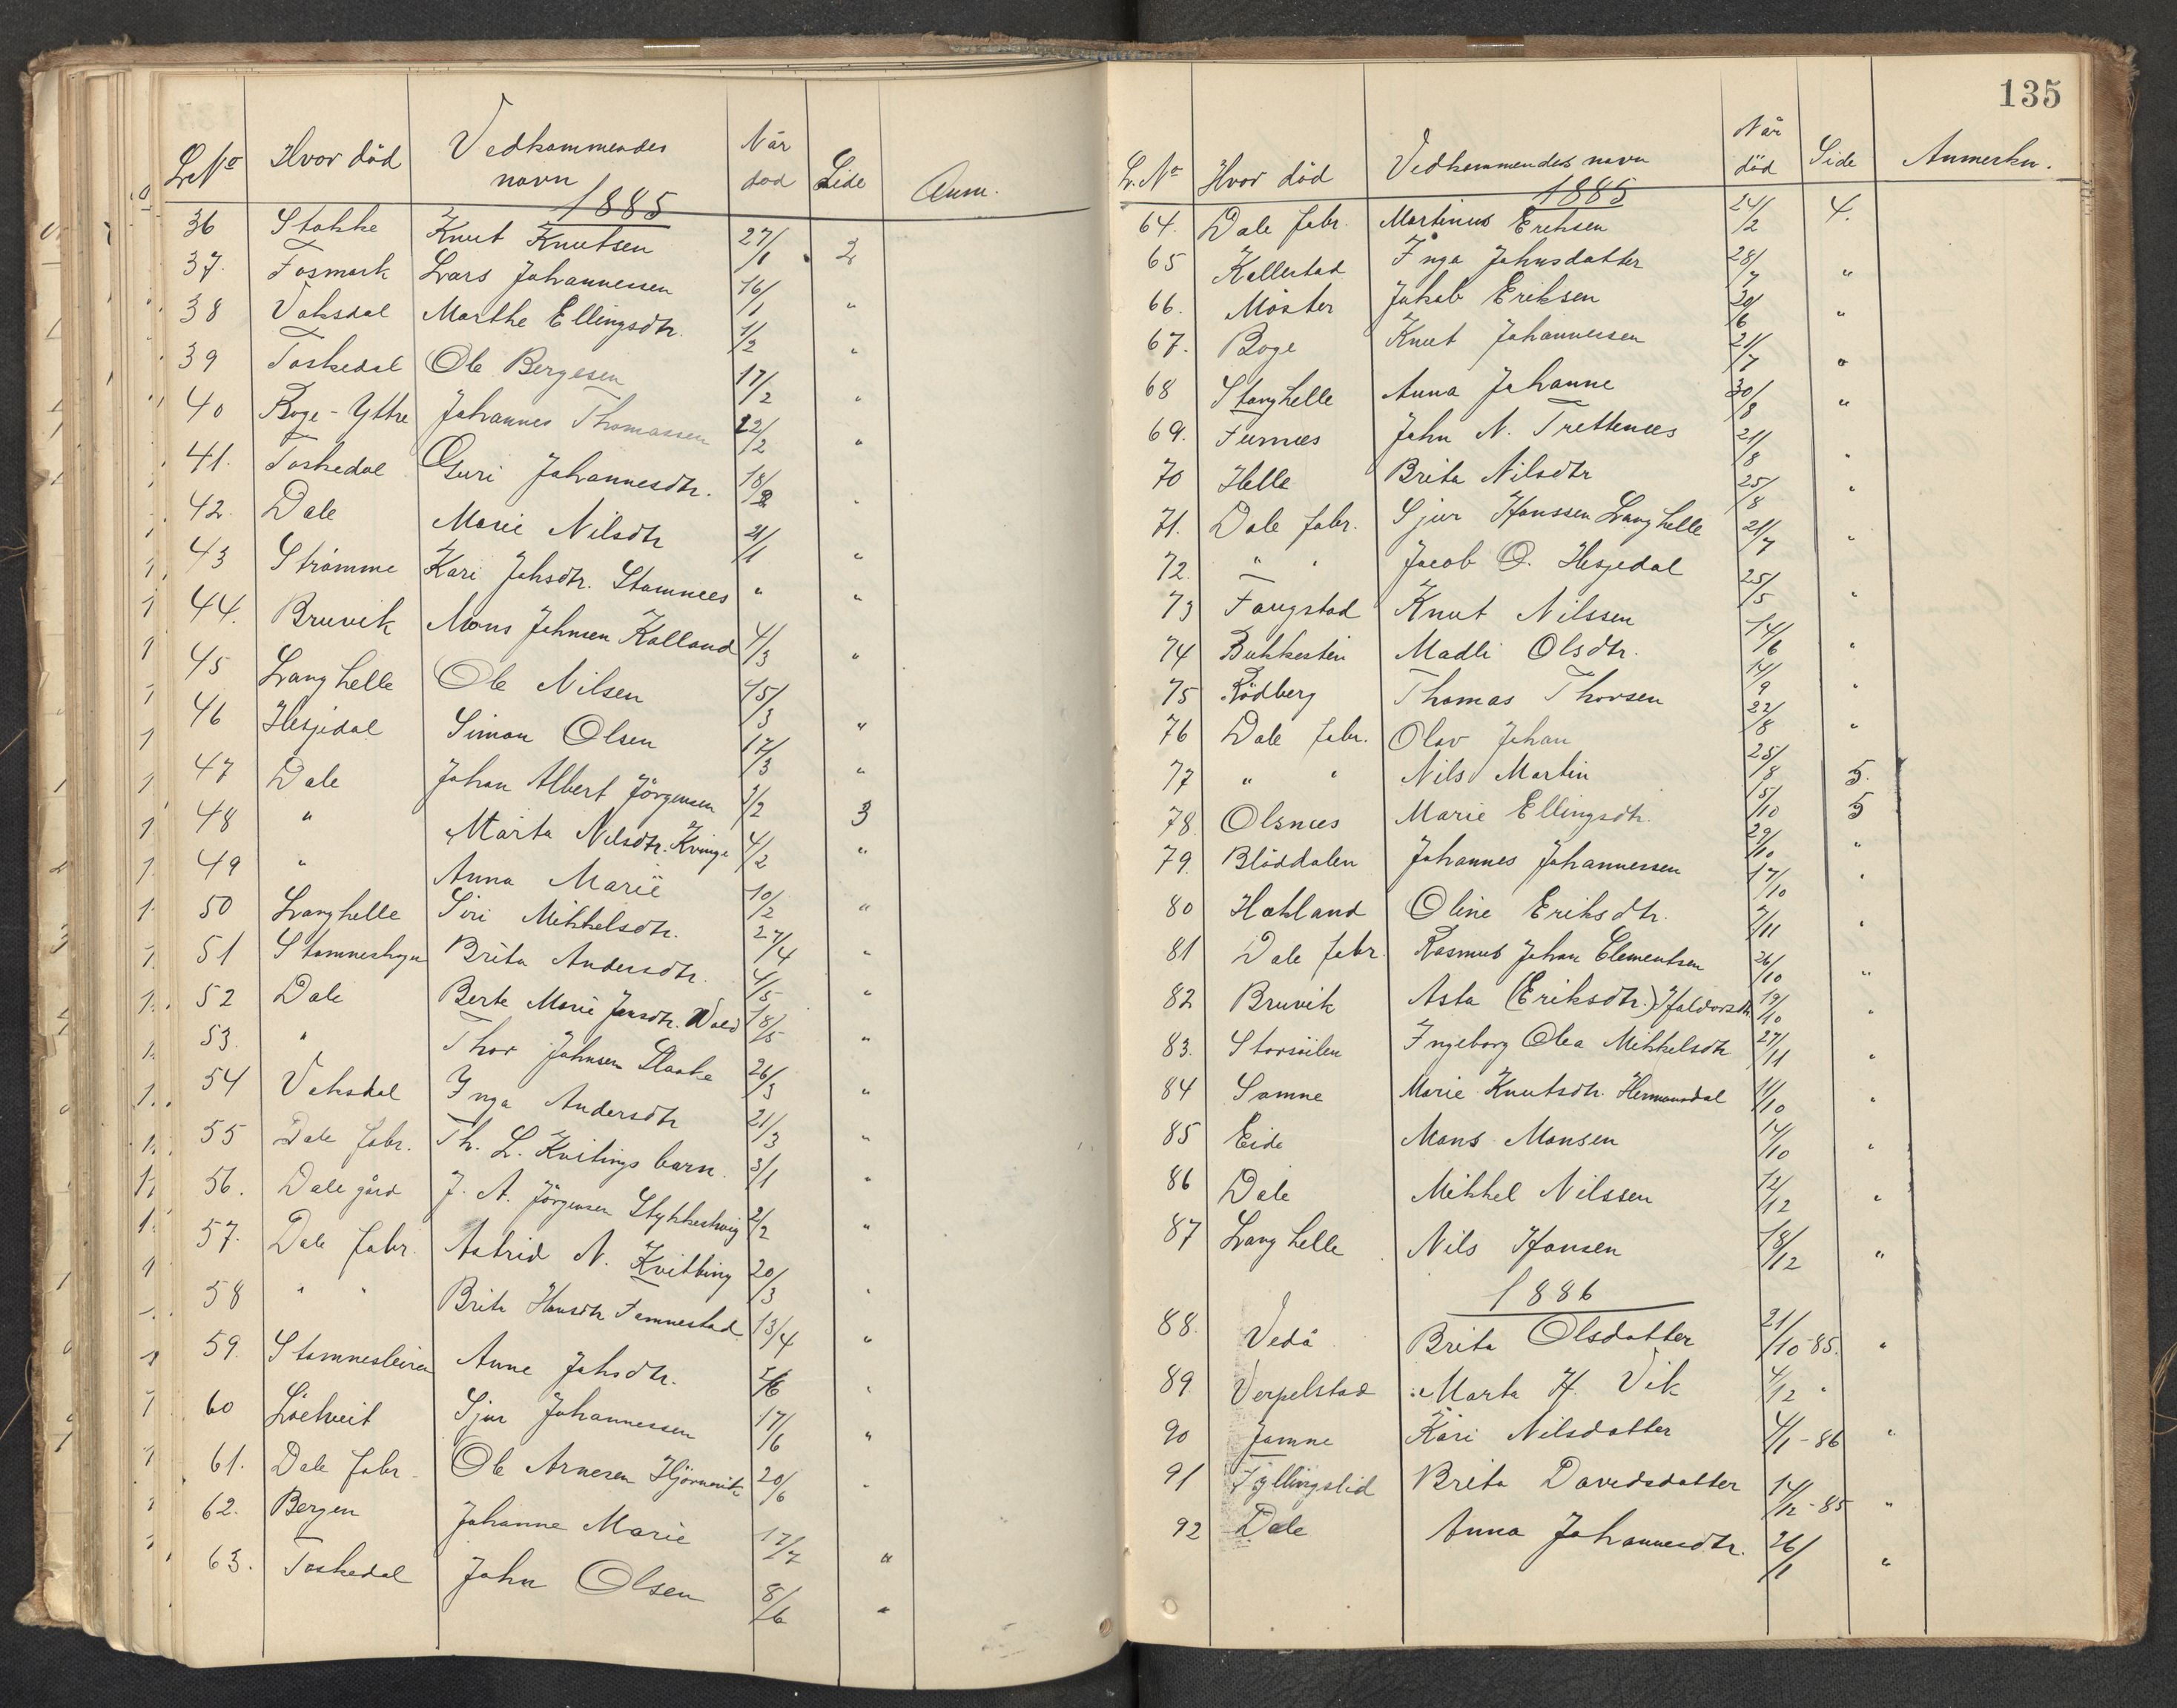 L. No Hvor död Vedkommendes navn Når död Side Anm.
1885
36 Stokke Knut Knutsen 27/1 2
37. Fosmark Lars Johannessen 16/1 "
38 Vaksdal Marthe Ellingsdtr. 1/2 "
39 Toskedal Ole Bergesen 17/2 "
40 Boge-Yttre Johannes Thomassen 22/2 "
41. Toskedal Guri Johannesdtr. 18/2 "
42. Dale Marie Nilsdtr 21/1 "
43 Strømme Kari Johsdtr. Stamnees " "
44. Bruvik Mons Johnsen Kalland 4/3 "
45 Langhelle Ole Nilsen 15/3 "
46 Hesjedal Simon Olsen 17/3 "
47 Dale Johan Albert Jörgensen 2/2 3
48 " Marta Nilsdtr. Kvinge 4/2 "
49 " Anna Marie 10/2 "
50 Langhelle Siri Mikkelsdtr. 27/4 "
51 Brita Andersdtr. 4/5 "
52 Dale Berte Marie Jansdtr. 18/5 "
53. " Thor Johnsen 26/3 "
54 Vaksdal Inga Andersdtr 21/3 "
55 Dale fabr. Th. L. Kvitings barn. 3/1 "
56. Dale gård J. A. Jörgensen 2/2 "
57. Dale fabr. Astrid N. Kvitting 20/3 "
58 " " Brita Hansdtr 13/4 "
59. Stamnesleiren Anne Johsdtr. 2/6 "
60 Sjur Johannessen 17/6 "
61. Dale fabr. Ole Arnesen 20/6 "
62. Bergen Johanne Marie 17/7 "
63. Toskedal John Olsen 8/6 "
135
L. No Hvor död Vedkommendes navn Når död Side Anmerkn.
1885
64. Dale fabr. Martinus Eriksen 24/2 4.
65 Kallestad Inga Johnsdatter 28/7 "
66. Möster Jakob Eriksen 30/6 "
67. Boge Knut Johannessen 21/7 "
68 Stanghelle Anna Johanne 30/8 "
69. Furnees John N. Trettenees 21/8 "
70 Helle Brita Nilsdtr 25/8 "
71. Dale fabr. Sjur Hanssen Langhelle 21/7 "
72. " " Jacob O. Hesjedal 25/5 "
73 Fangstad Knut Nilssen 14/6 "
74 Bukkestein Madli Olsdtr. 14/9 "
75 Rödberg Thomas Thorsen 22/8 "
76 Dale fabr. Olav Johan 25/8 "
77 " " Nils Martin 5.
78. Olsnees Marie Ellingsdtr. 29/10 5
79. Blöddalen Johannes Johannessen 17/10 "
80 Hokland Oline Eriksdtr. 7/11 "
81 Dale fabr. Rasmus Johan Clementsen 26/10 "
82 Bruvik Asta (Eriksdtr.) Haldorsdtr 19/10 "
83. Ingeborg Olea Mikkelsdtr 27/11 "
84 Samne Marie Knutsdtr. Hermansdal 11/10 "
85 Eide Mons Monsen 14/10 "
86 Dale Mikkel Nilssen 12/12 "
87 Langhelle Nils Hansen 18/12 "
1886
88. Vedå Brita Olsdatter 21/10-85. "
89. Verpelstad Marta H. Vik 4/12 "
90 Jamne Kari Nilsdatter 4/1-86 "
91 Fyllingslid Brita Davidsdatter 14/12-85 "
92 Dale Anna Johannesdtr. 26/1 "